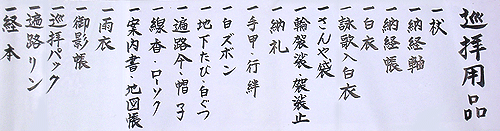 巡拝用品
一杖
一納経軸
一納経帳
一白衣
一詠歌入白衣
一さんや袋
一輪袈裟・袈裟止
一納礼
一手甲・行絆
一白ズボン
一地下たび・白ぐつ
一遍路傘・帽子
一線香・ローソク
一案内書・地図帳
一雨衣
一御影帳
一巡拝バック
一遍路リン
一経本